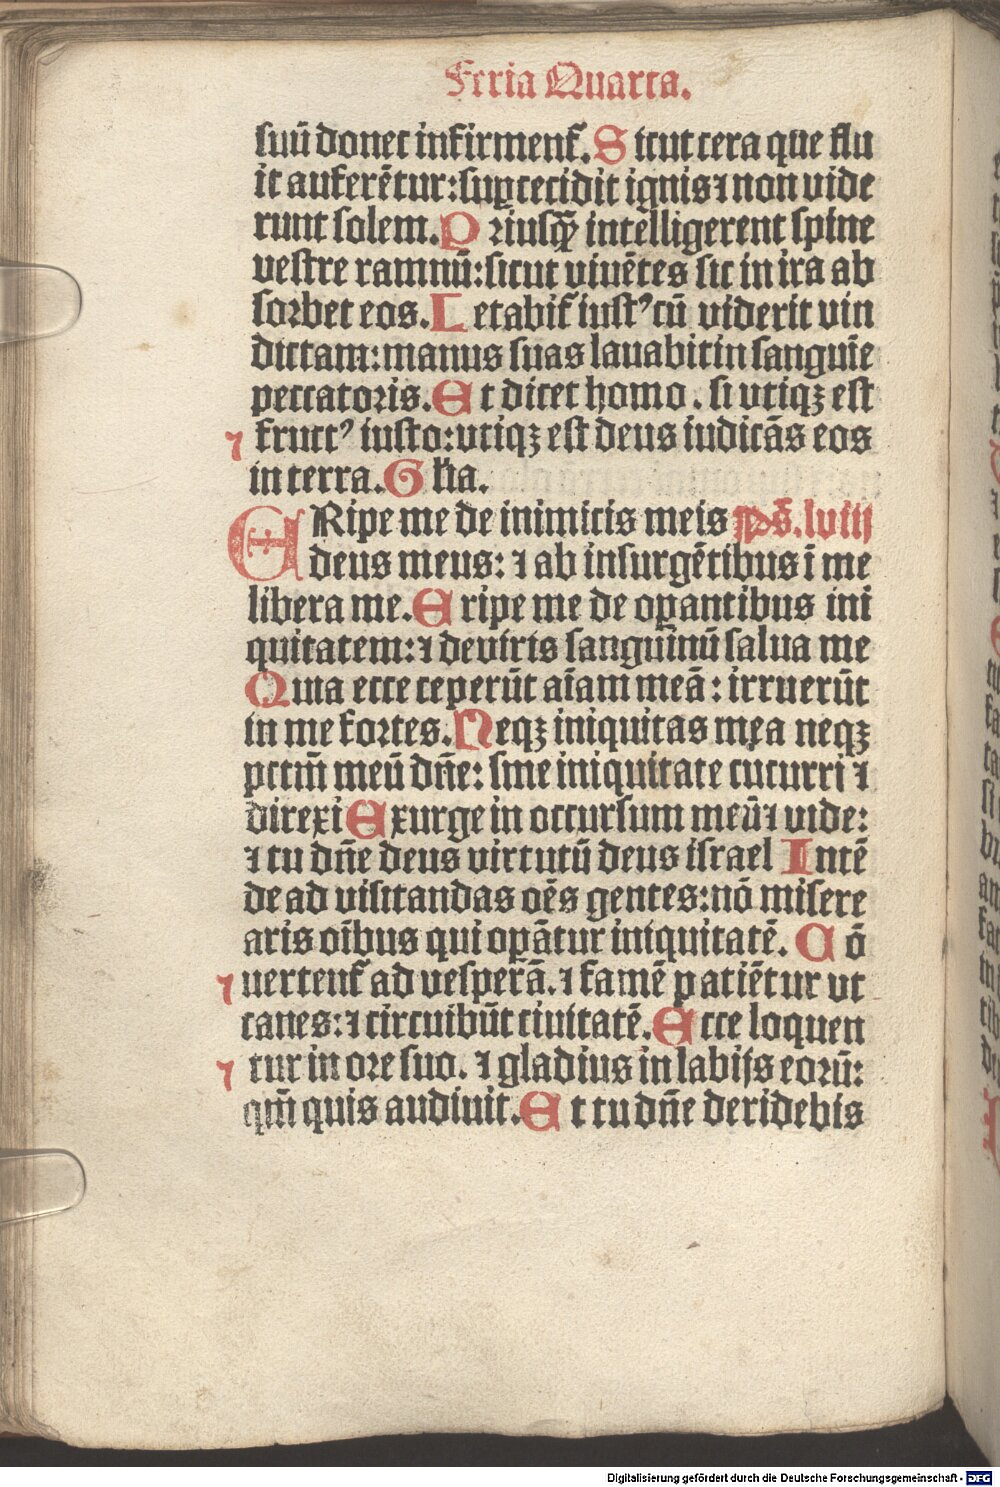 Feria Quarta.
suū donec infirment᷑. Sicut cera que flu
it auferētur: suꝑcecidit ignis ⁊ non vide
runt solem. Priusꝙ̃ intelligerent spine
vestre ramnū: sicut viuētes sic in ira ab
sorbet eos. Letabit᷑ iustꝰ cū viderit vin
dictam: manus suas lauabit in sanguīe
peccatoris. Et dicet homo . si vtiqꝫ est
⁊ fructꝰ iusto: vtiqꝫ est deus iudicās eos
in terra. Glia.
ERipe me de inimicis meis Ps̄. lviij
deus meus: ⁊ ab insurgētibus ī me
libera me. Eripe me de oꝑantibus ini
quitatem: ⁊ de viris sanguinū salua me
Quia ecce ceperūt aīam meā: irruerūt
in me fortes. Neqꝫ iniquitas mea neqꝫ
pctm̄ meū dn̄e: sine iniquitate cucurri ⁊
direxi Exurge in occursum meū ⁊ vide:
⁊ tu dn̄e deus virtutū deus israel Intē
de ad visitandas oēs gentes: nō misere
aris oībus qui oꝑātur iniquitatē. Cō
⁊ uertent᷑ ad vesperā. ⁊ famē patiētur vt
canes: ⁊ circuibūt ciuitatē. Ecce loquen
⁊ tur in ore suo. ⁊ gladius in labijs eorū:
qm̄ quis audiuit. Et tu dn̄e deridebis
Digitalisierung gefördert durch die Deutsche Forschungsgemeinschaft - DFG